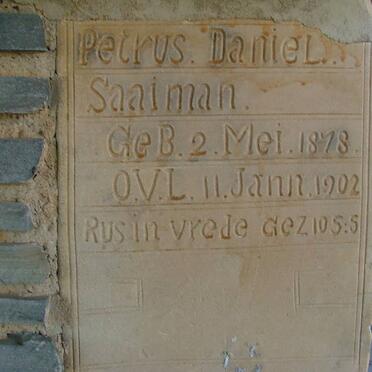 PetRus. DanieL.
Saaiman.
GeB. 2. Mei. 1878.
O.V.L. 11. Jann. 1902
Rus in vrede Gez 105:5